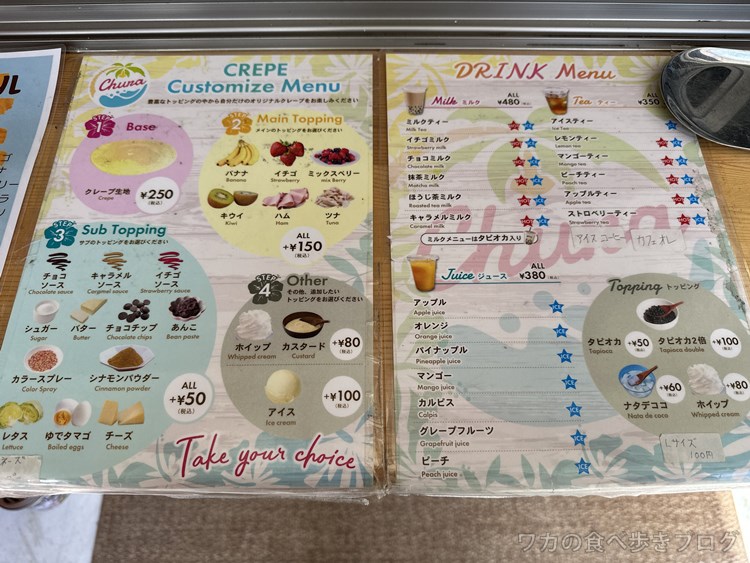 Chura
CREPE
Customize Menu
豊富なトッピングの中から自分だけのオリジナルクレープをお楽しみください
STEP 1 Base
クレープ生地
Crepe
¥250
(税込)
STEP 2 Main Topping
メインのトッピングをお選びください
バナナ
Banana
イチゴ
Strawberry
ミックスベリー
mix Berry
キウイ
Kiwi
ハム
Ham
ツナ
Tuna
ALL
+¥150
(税込)
STEP 3 Sub Topping
サブのトッピングをお選びください
チョコ
ソース
Chocolate sauce
キャラメル
ソース
Caramel sauce
イチゴ
ソース
Strawberry sauce
シュガー
Sugar
バター
Butter
チョコチップ
Chocolate chips
あんこ
Bean paste
カラースプレー
Color Spray
シナモンパウダー
Cinnamon powder
レタス
Lettuce
ゆでタマゴ
Boiled eggs
チーズ
Cheese
ALL
+¥50
(税込)
STEP 4 Other
その他、追加したい
トッピングをお選びください
ホイップ
Whipped cream
カスタード
Custard
+¥80
(税込)
アイス
Ice cream
+¥100
(税込)
Take your choice
DRINK Menu
Milk ミルク
ALL
¥480
(税込)
ミルクティー
Milk tea
イチゴミルク
Strawberry milk
チョコミルク
Chocolate milk
抹茶ミルク
Matcha milk
ほうじ茶ミルク
Roasted tea milk
キャラメルミルク
Caramel milk
ミルクメニューはタピオカ入り
Tea ティー
ALL
¥350
アイスティー
Ice Tea
レモンティー
Lemon tea
マンゴーティー
Mango tea
ピーチティー
Peach tea
アップルティー
Apple tea
ストロベリーティー
Strawberry tea
アイスコーヒー カフェオレ
Juice ジュース
ALL
¥380
(税込)
アップル
Apple juice
ICE
オレンジ
Orange juice
ICE
パイナップル
Pineapple juice
ICE
マンゴー
Mango juice
ICE
カルピス
Calpis
ICE
グレープフルーツ
Grapefruit juice
ICE
ピーチ
Peach juice
ICE
Topping トッピング
タピオカ
Tapioca
+¥50
(税込)
タピオカ2倍
Tapioca double
+¥100
(税込)
ナタデココ
Nata de coco
+¥60
(税込)
ホイップ
Whipped cream
+¥80
(税込)
Lサイズ
100円
ワカの食べ歩きブログ